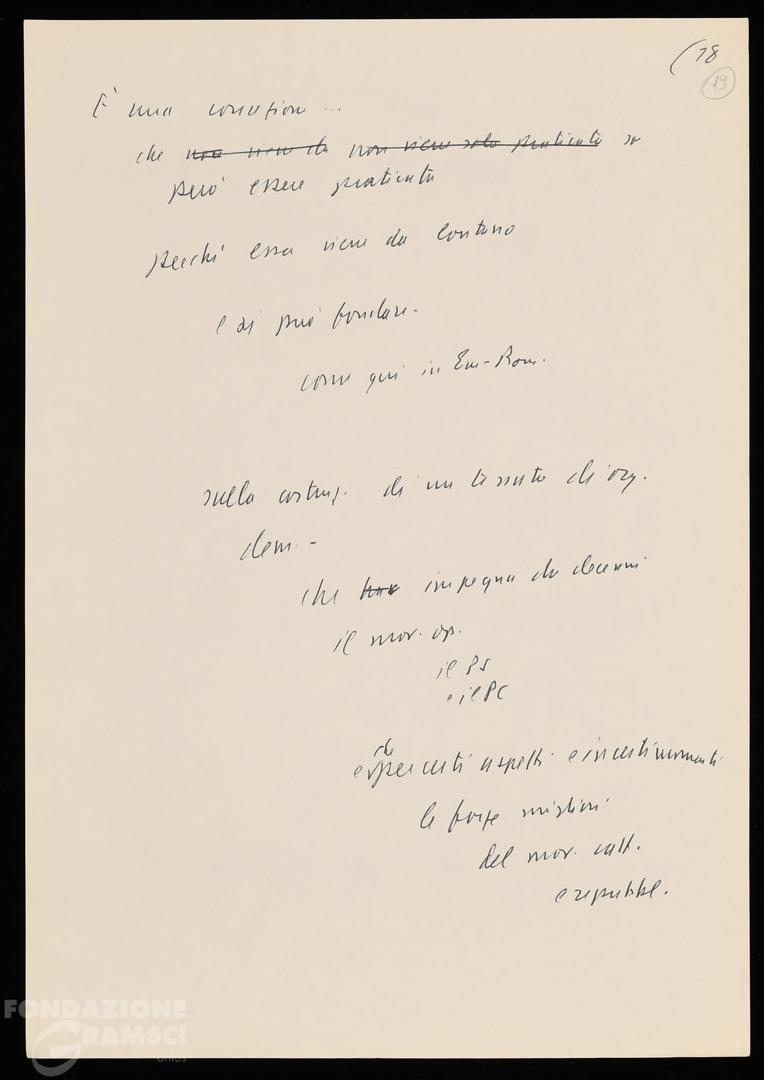 (18
19
È una concezione ...
che non viene da non viene solo praticata
può essere praticata
perché essa viene da lontano
e si può fondare -
come qui in Em-Rom.
sulla costruz. di un tessuto di org.
dem. -
che impegna da decenni
il mov. op.
il PS
e il PC
che
e per certi aspetti e in certi momenti
le forze migliori
del mov. catt.
e repubbl.
FONDAZIONE
GRAMSCI
onlus